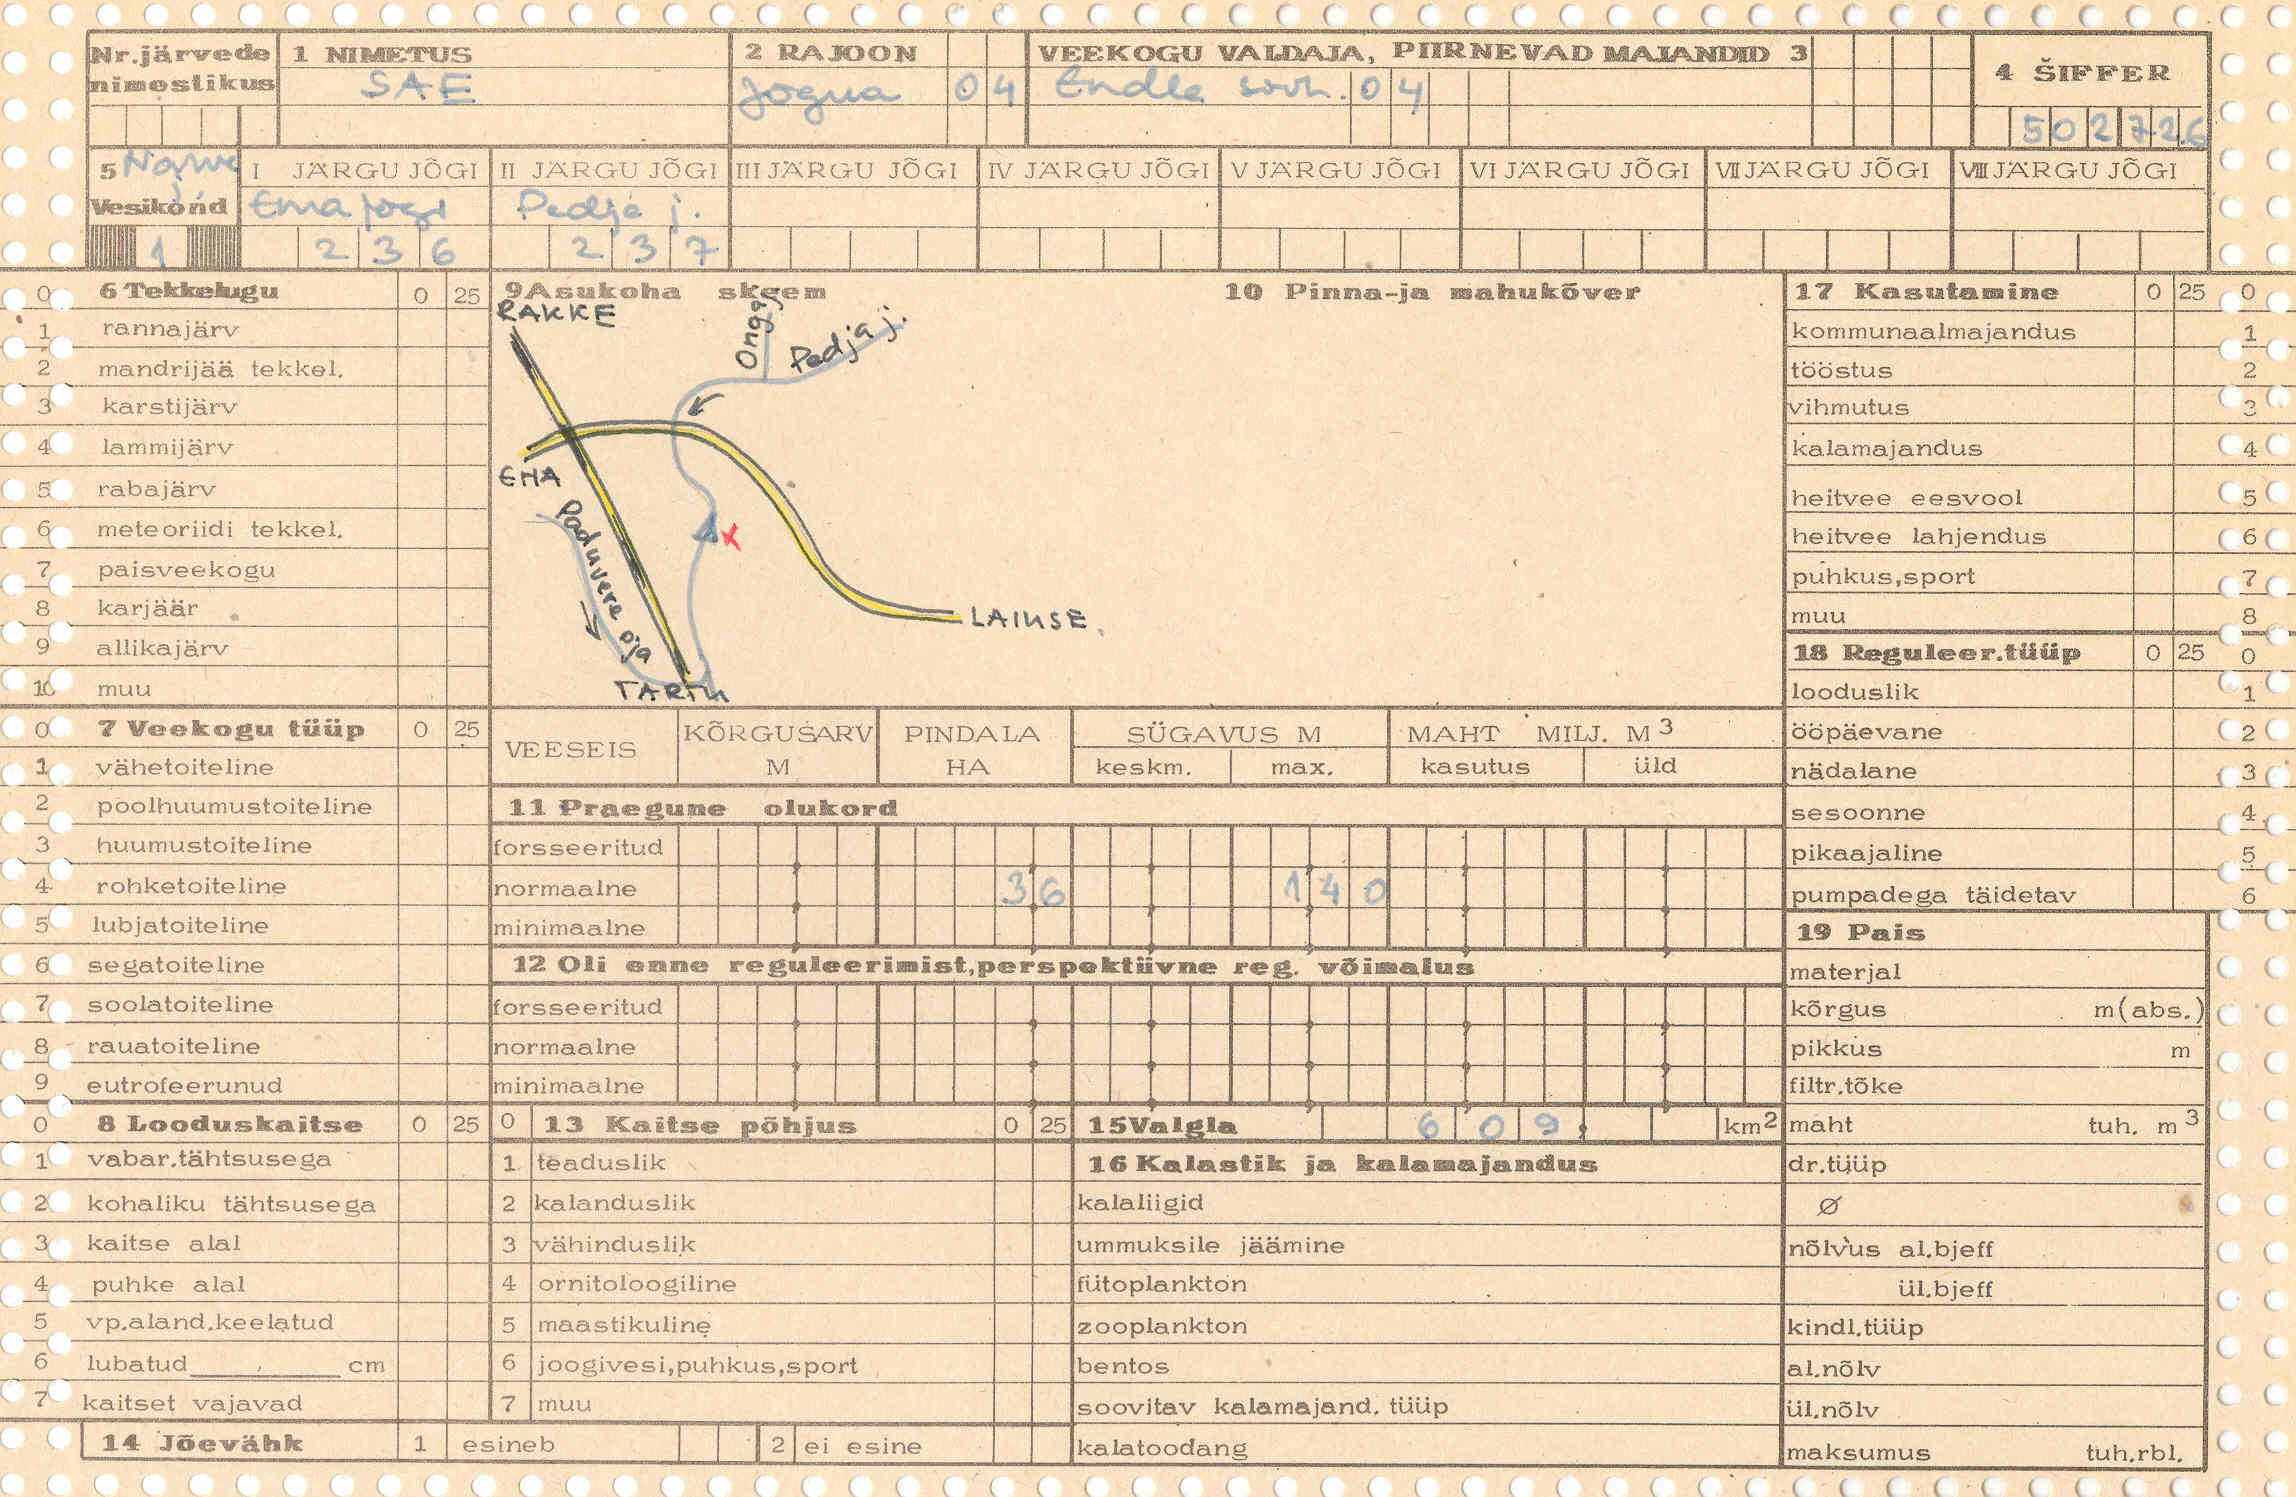 Nr.järvede nimestikus
1 NIMETUS
SAE
2 RAJOON
Jõgeva 04
VEEKOGU VALDAJA, PIIRNEVAD MAJANDID 3
Endla sovh. 04
4 ŠIFFER
502726
5 Narva j. Vesikond
1
I JÄRGU JÕGI
Ema jõgi
236
II JÄRGU JÕGI
Pedja j.
237
III JÄRGU JÕGI
IV JÄRGU JÕGI
V JÄRGU JÕGI
VI JÄRGU JÕGI
VII JÄRGU JÕGI
VIII JÄRGU JÕGI
0 6 Tekkelugu 0 25
1 rannajärv
2 mandrijää tekkel.
3 karstijärv
4 lammijärv
5 rabajärv
6 meteoriidi tekkel.
7 paisveekogu
8 karjäär
9 allikajärv
10 muu
0 7 Veekogu tüüp 0 25
1 vähetoiteline
2 poolhuumustoiteline
3 huumustoiteline
4 rohketoiteline
5 lubjatoiteline
6 segatoiteline
7 soolatoiteline
8 rauatoiteline
9 eutrofeerunud
0 8 Looduskaitse 0 25
1 vabar.tähtsusega
2 kohaliku tähtsusega
3 kaitse alal
4 puhke alal
5 vp.aland.keelatud
6 lubatud cm
7 kaitset vajavad
14 Jõevähk 1 esineb 2 ei esine
9 Asukoha skeem
RAKKE
Pedja j.
LAIUSE
Paduvere oja
TARTU
x
10 Pinna-ja mahukõver
VEESEIS
KÕRGUSARV M
PINDALA HA
SÜGAVUS M
keskm. max.
MAHT MILJ. M3
kasutus üld
11 Praegune olukord
forsseeritud
normaalne 36 140
minimaalne
12 Oli enne reguleerimist,perspektiivne reg. võimalus
forsseeritud
normaalne
minimaalne
0 13 Kaitse põhjus 0 25
1 teaduslik
2 kalanduslik
3 vähinduslik
4 ornitoloogiline
5 maastikuline
6 joogivesi,puhkus,sport
7 muu
15 Valgla 609, km2
16 Kalastik ja kalamajandus
kalaliigid
ummuksile jäämine
fütoplankton
zooplankton
bentos
soovitav kalamajand. tüüp
kalatoodang
17 Kasutamine 0 25 0
kommunaalmajandus 1
tööstus 2
vihmutus 3
kalamajandus 4
heitvee eesvool 5
heitvee lahjendus 6
puhkus,sport 7
muu 8
18 Reguleer.tüüp 0 25 0
looduslik 1
ööpäevane 2
nädalane 3
sesoonne 4
pikaajaline 5
pumpadega täidetav 6
19 Pais
materjal
kõrgus m(abs.)
pikkus m
filtr.tõke
maht tuh. m3
dr.tüüp
Ø
nõlvus al.bjeff
ül.bjeff
kindl.tüüp
al.nõlv
ül.nõlv
maksumus tuh.rbl.